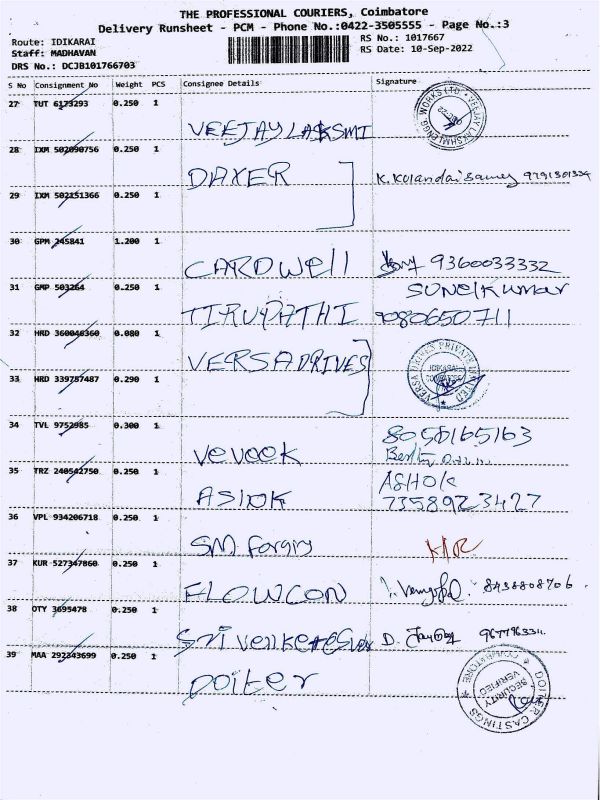 THE PROFESSIONAL COURIERS, Coimbatore
Delivery Runsheet - PCM - Phone No.:0422-3505555 - Page No.:3
Route: IDIKARAI
RS No.: 1017667
Staff: MADHAVAN
RS Date: 10-Sep-2022
DRS No.: DCJB101766703
S No Consignment No Weight PCS Consignee Details Signature
27 TUT 6173293 0.250 1
VEEJAY LAKSMI
WORKS LTD * VEEJAY LAKSHMI ENGG
28 IXM 502090756 0.250 1
DAXER K. Kolandaisamy 9791301334
29 IXM 502151366 0.250 1
30 GPM 245841 1.200 1
CARDWell 9360033332
31 GMP 503264 0.250 1
SUNeIKumar
TIRUPATHI 9080650711
32 HRD 360046360 0.080 1
VERSADRIVES
VERSA DRIVES PRIVATE LIMITED
IDIKARAI
COIMBATORE
33 HRD 339787487 0.290 1
34 TVL 9752985 0.300 1
8056165163
vevook
35 TRZ 240542750 0.250 1
ASHOK
ASHOK 7358923427
36 VPL 934206718 0.250 1
SM Forging
37 KUR 527347860 0.250 1
FLOWCON 8438808706
38 OTY 3695478 0.250 1
Sri venkateswar D.
39 MAA 292343699 0.250 1
Doiter
DOITER CASTINGS * COIMBATORE *
SECURITY
VERIFIED